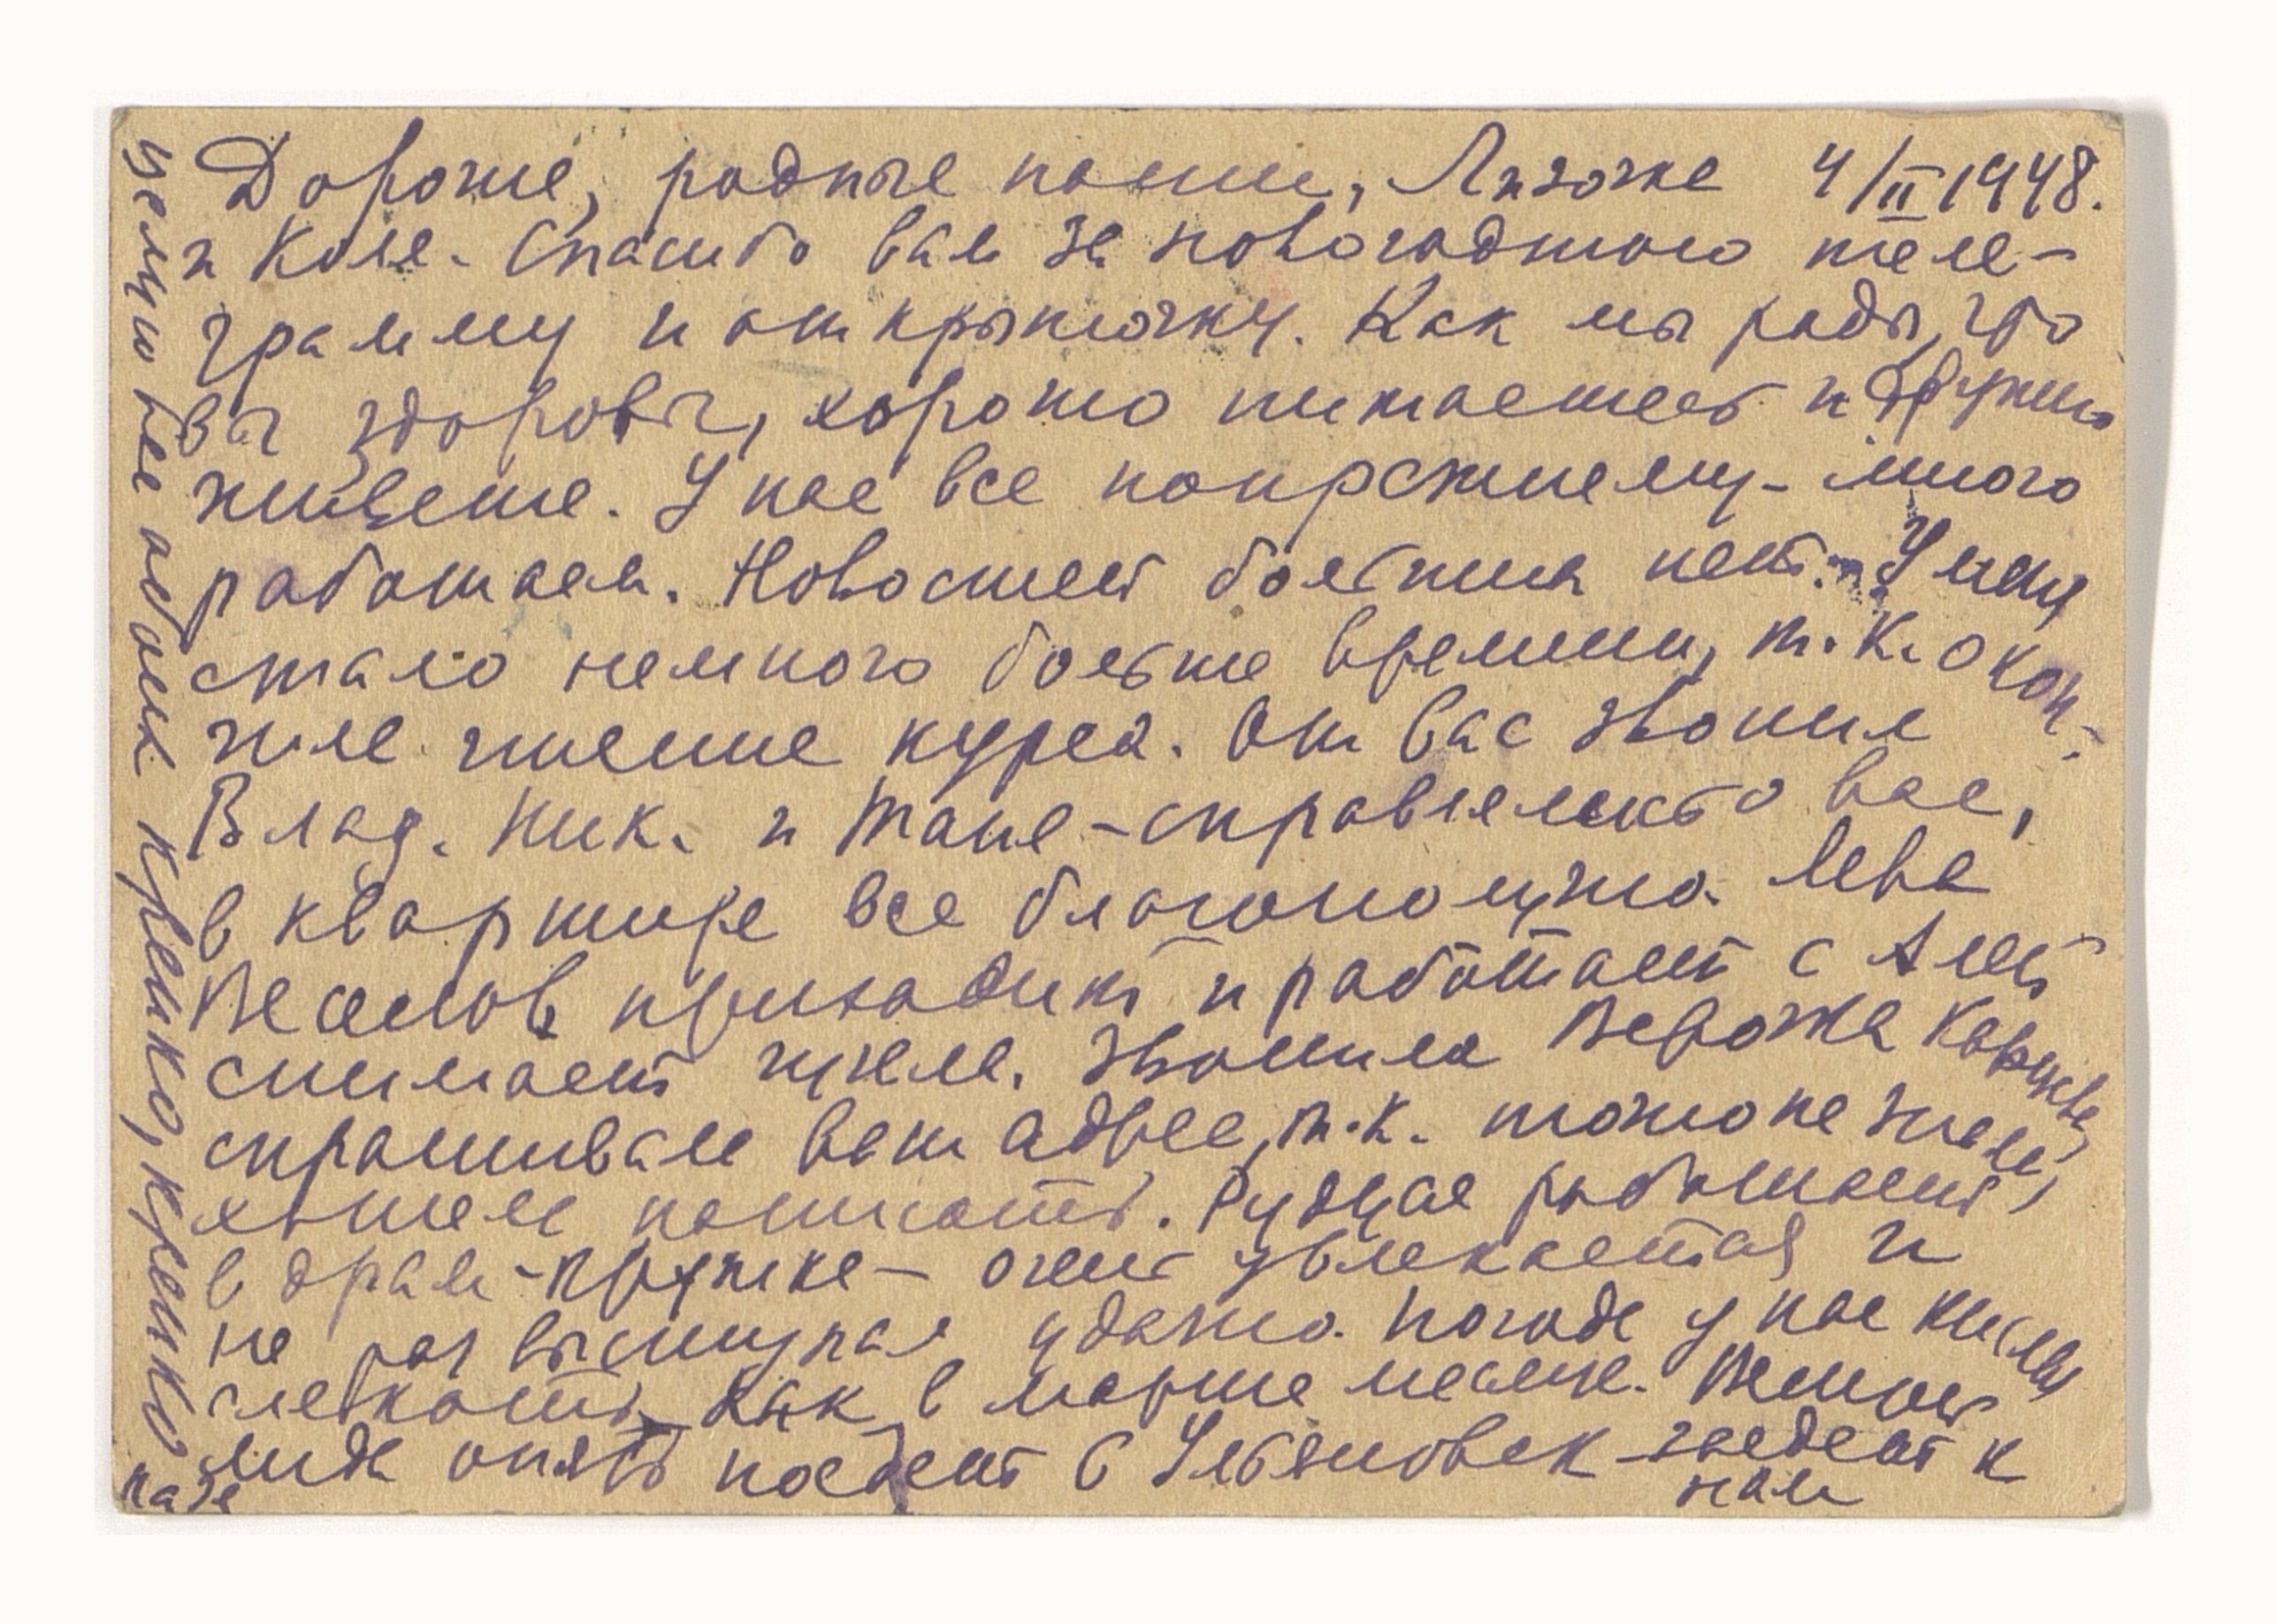 Дорогие, родные наши, Лизочка 4/II 1948.
и Коля. Спасибо вам за новогоднюю теле-
грамму и открыточку. Как мы рады, что
вы здоровы, хорошо питаетесь и дружно
живете. У нас все попрежнему - много
работаем. Новостей больших нет. У меня
стало немного больше времени, т.к. окон-
чила чтение курса. От вас звонил
Влад. Ник. и Таня - справлялись о вас,
в квартире все благополучно. Лева
Веселов приходит и работает с Алей
снимает чтение. Звонила Верочка
спрашивала ваш адрес, т.к. точно не знала,
хотела написать. работает
в драм-кружке - очень увлекается и
не раз выступал удачно. Погода у нас кислая
слякоть, как в марте месяце. Ветров
Лида опять поедет в Ульяновск - заедет к
нам
целую вас обоих крепко, крепко